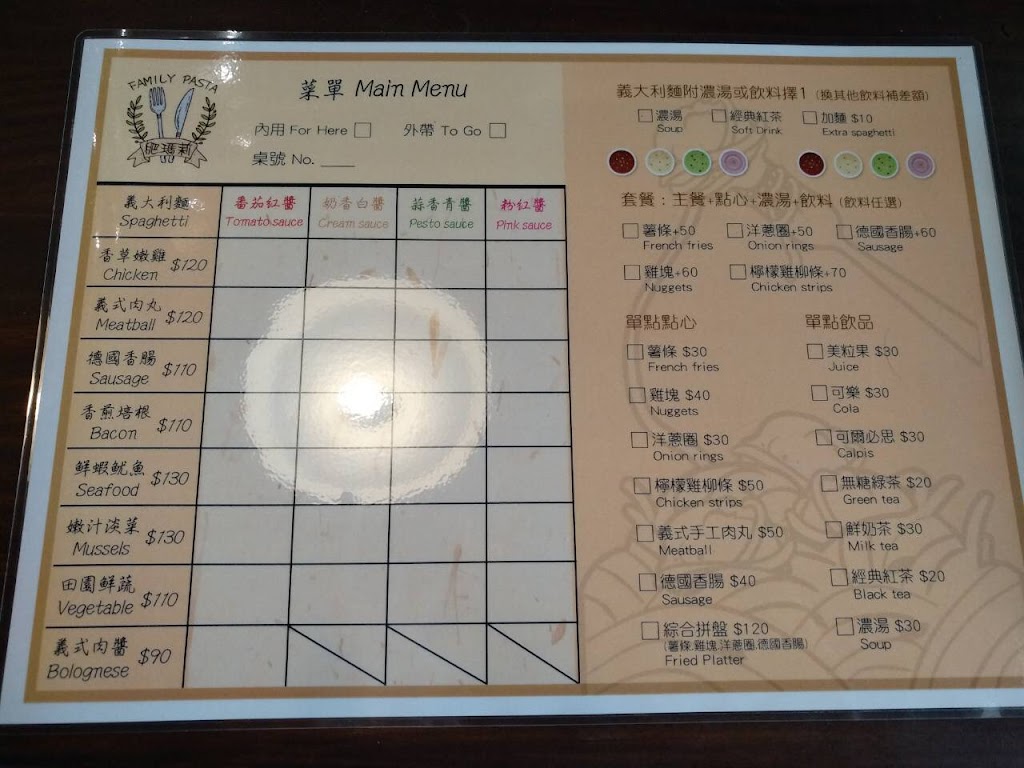 FAMILY PASTA
肥瑪莉
菜單 Main Menu
內用 For Here
外帶 To Go
桌號 No. ____
義大利麵
Spaghetti
番茄紅醬
Tomato sauce
奶香白醬
Cream sauce
蒜香青醬
Pesto sauce
粉紅醬
Pink sauce
香草嫩雞
Chicken $120
義式肉丸
Meatball $120
德國香腸
Sausage $110
香煎培根
Bacon $110
鮮蝦魷魚
Seafood $130
嫩汁淡菜
Mussels $130
田園鮮蔬
Vegetable $110
義式肉醬
Bolognese $90
義大利麵附濃湯或飲料擇1 (換其他飲料補差額)
濃湯
Soup
經典紅茶
Soft Drink
加麵 $10
Extra spaghetti
套餐：主餐+點心+濃湯+飲料 (飲料任選)
薯條+50
French fries
洋蔥圈+50
Onion rings
德國香腸+60
Sausage
雞塊+60
Nuggets
檸檬雞柳條+70
Chicken strips
單點點心
薯條 $30
French fries
雞塊 $40
Nuggets
洋蔥圈 $30
Onion rings
檸檬雞柳條 $50
Chicken strips
義式手工肉丸 $50
Meatball
德國香腸 $40
Sausage
綜合拼盤 $120
(薯條,雞塊,洋蔥圈,德國香腸)
Fried Platter
單點飲品
美粒果 $30
Juice
可樂 $30
Cola
可爾必思 $30
Calpis
無糖綠茶 $20
Green tea
鮮奶茶 $30
Milk tea
經典紅茶 $20
Black tea
濃湯 $30
Soup